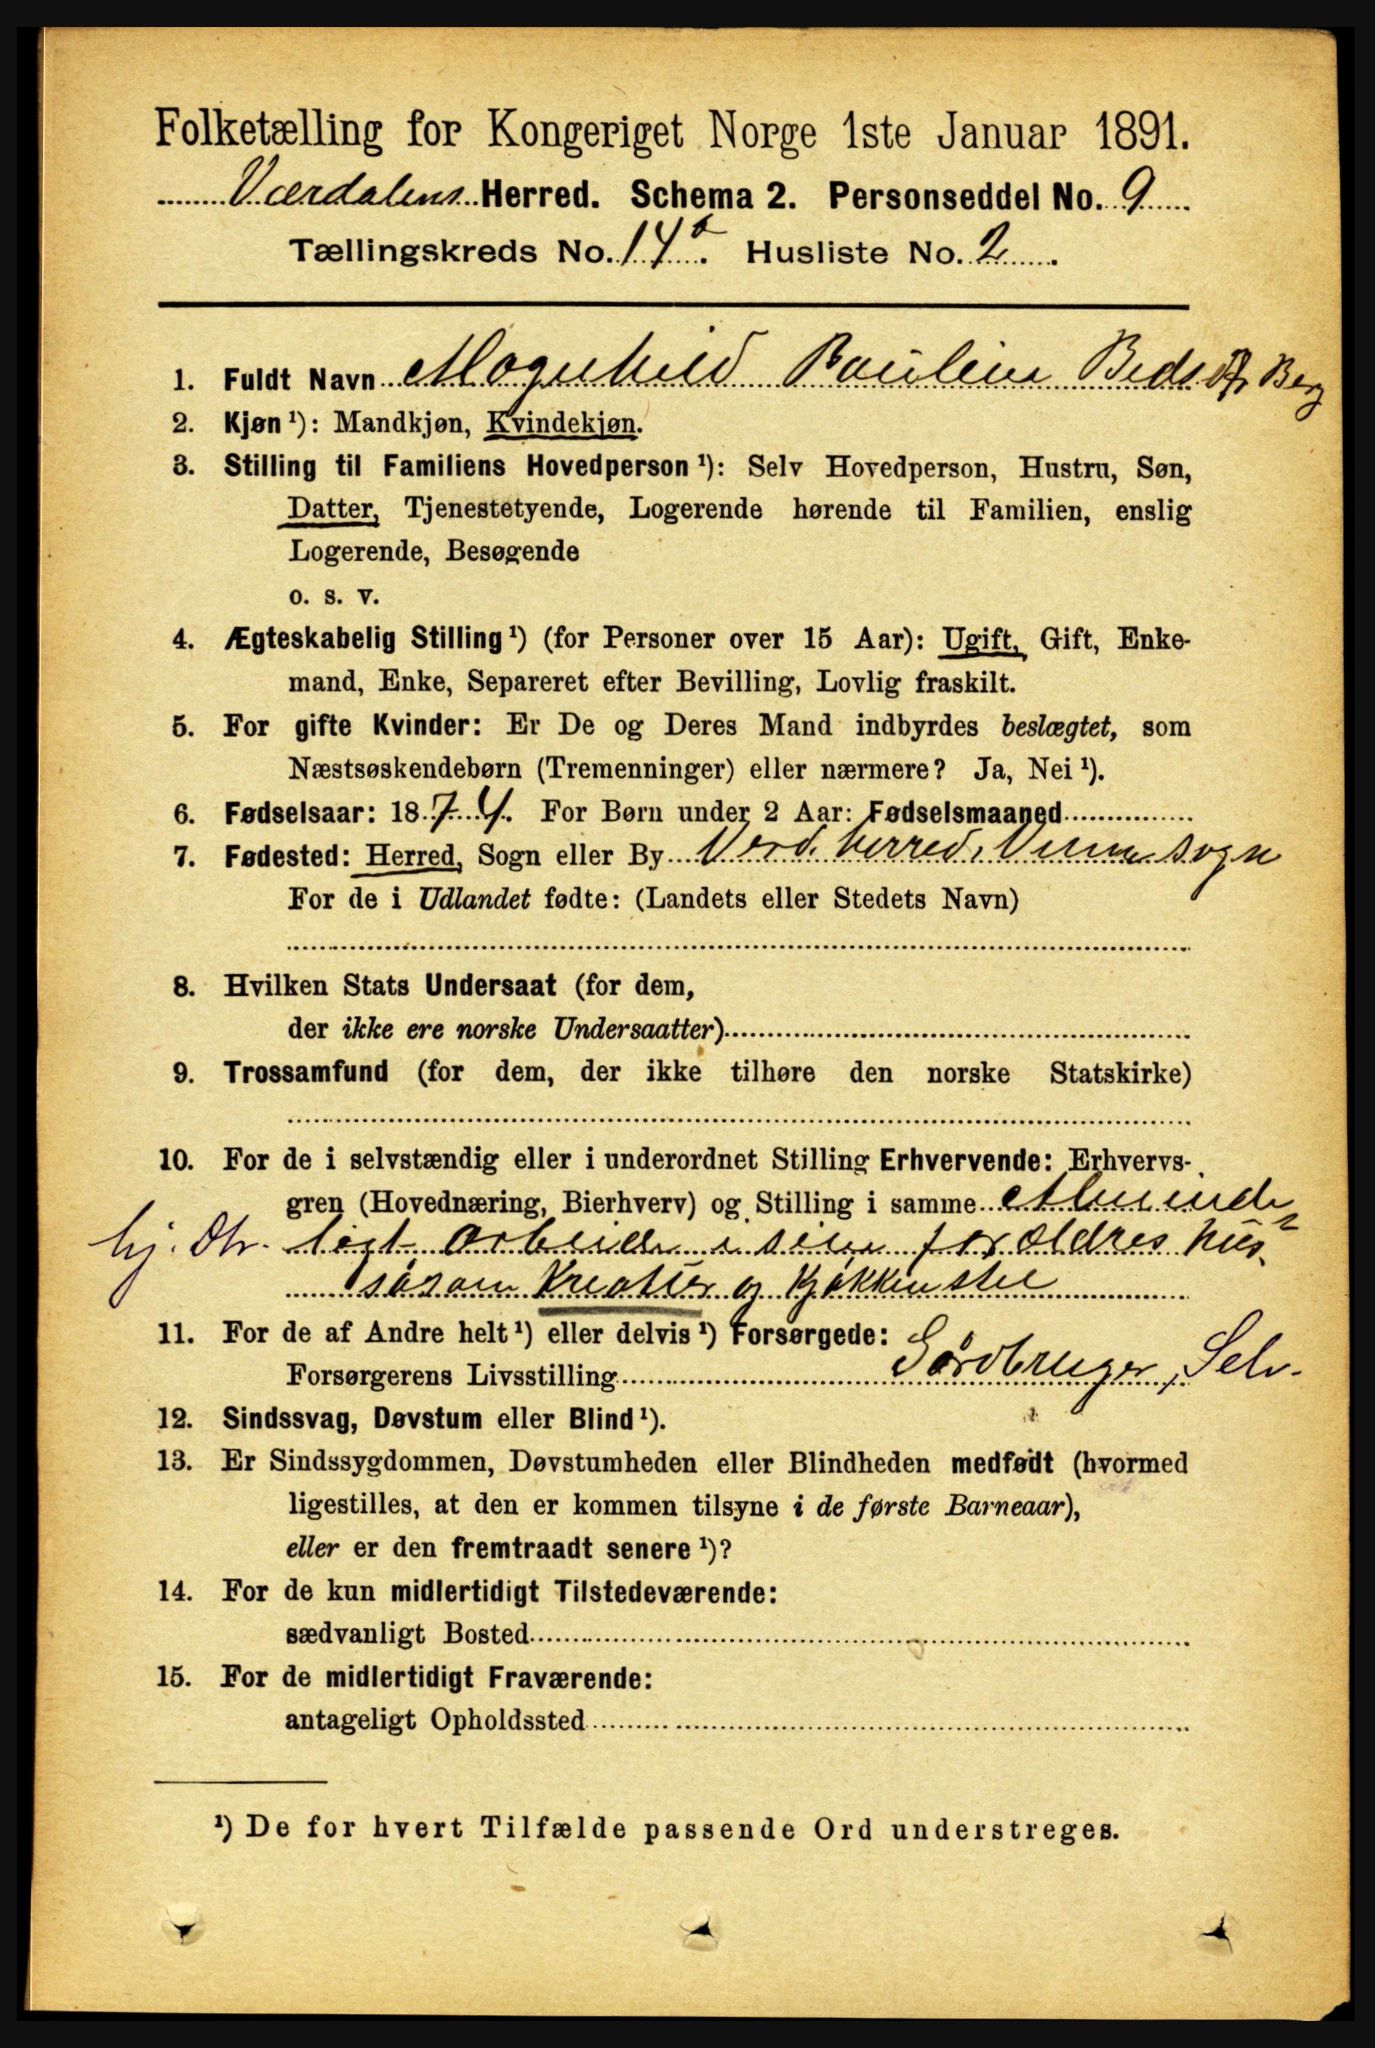 Folketælling for Kongeriget Norge 1ste Januar 1891.
Værdalens Herred. Schema 2. Personseddel No. 9
Tællingskreds No. 14 b. Husliste No. 2
1. Fuldt Navn Magnhild Pauline Beds Dtr Berg
2. Kjøn ¹): Mandkjøn, Kvindekjøn.
3. Stilling til Familiens Hovedperson ¹): Selv Hovedperson, Hustru, Søn,
Datter, Tjenestetyende, Logerende hørende til Familien, enslig
Logerende, Besøgende
o. s. v.
4. Ægteskabelig Stilling ¹) (for Personer over 15 Aar): Ugift, Gift, Enke-
mand, Enke, Separeret efter Bevilling, Lovlig fraskilt.
5. For gifte Kvinder: Er De og Deres Mand indbyrdes beslægtet, som
Næstsøskendebørn (Tremenninger) eller nærmere? Ja, Nei ¹).
6. Fødselsaar: 1874. For Børn under 2 Aar: Fødselsmaaned
7. Fødested: Herred, Sogn eller By Verd. herred, Vinne sogn
For de i Udlandet fødte: (Landets eller Stedets Navn)
8. Hvilken Stats Undersaat (for dem,
der ikke ere norske Undersaatter)
9. Trossamfund (for dem, der ikke tilhøre den norske Statskirke)
10. For de i selvstændig eller i underordnet Stilling Erhvervende: Erhvervs-
gren (Hovednæring, Bierhverv) og Stilling i samme Alminde
hj. Dtr. ligt arbeide i sine forældres hus
såsom Kreatur og kjøkkenstel
11. For de af Andre helt ¹) eller delvis ¹) Forsørgede:
Forsørgerens Livsstilling Gårdbruger, Selv.
12. Sindssvag, Døvstum eller Blind ¹).
13. Er Sindssygdommen, Døvstumheden eller Blindheden medfødt (hvormed
ligestilles, at den er kommen tilsyne i de første Barneaar),
eller er den fremtraadt senere ¹)?
14. For de kun midlertidigt Tilstedeværende:
sædvanligt Bosted
15. For de midlertidigt Fraværende:
antageligt Opholdssted
¹) De for hvert Tilfælde passende Ord understreges.